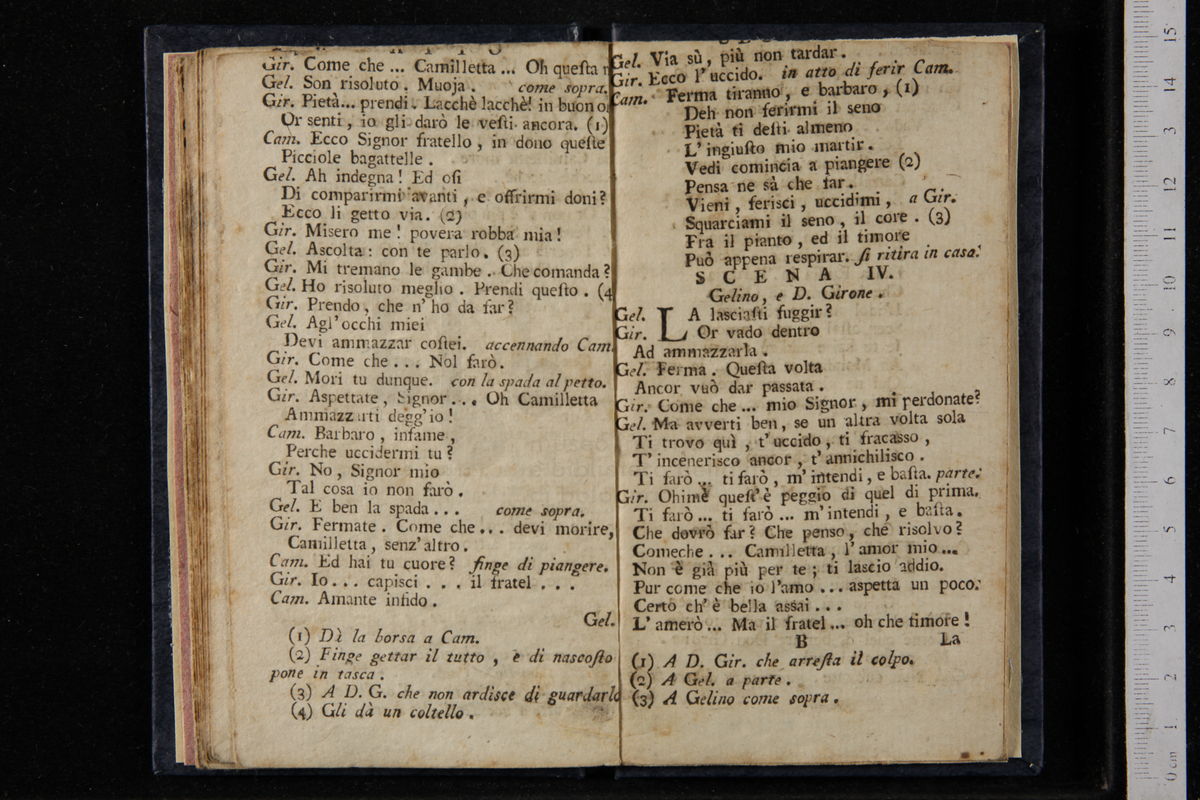 Gir. Come che ... Camilletta ... Oh queſta
Gel. Son riſoluto. Muoja. come sopra.
Gir. Pietà... prendi. Lacchè lacchè! in buon o
Or senti, io gli darò le veſti ancora. (1)
Cam. Ecco Signor fratello, in dono queſte
Picciole bagattelle.
Gel. Ah indegna! Ed oſi
Di comparirmi avanti, e offrirmi doni?
Ecco li getto via. (2)
Gir. Misero me! povera robba mia!
Gel. Ascolta: con te parlo. (3)
Gir. Mi tremano le gambe. Che comanda?
Gel. Ho risoluto meglio. Prendi queſto. (4
Gir. Prendo, che n' ho da far?
Gel. Agl' occhi miei
Devi ammazzar coſtei. accennando Cam.
Gir. Come che ... Nol farò.
Gel. Mori tu dunque. con la spada al petto.
Gir. Aspettate, Signor... Oh Camilletta
Ammazzarti degg' io!
Cam. Barbaro, infame,
Perche uccidermi tu?
Gir. No, Signor mio
Tal cosa io non farò.
Gel. E ben la spada ... come sopra.
Gir. Fermate. Come che ... devi morire,
Camilletta, senz' altro.
Cam. Ed hai tu cuore? finge di piangere.
Gir. Io ... capisci ... il fratel ...
Cam. Amante infido.
Gel.
(1) Dì la borsa a Cam.
(2) Finge gettar il tutto, e di nascoſto
pone in tasca.
(3) A D. G. che non ardisce di guardarlo
(4) Gli dà un coltello.
Gel. Via sù, più non tardar.
Gir. Ecco l' uccido. in atto di ferir Cam.
Cam. Ferma tiranno, e barbaro, (1)
Deh non ferirmi il seno
Pietà ti deſti almeno
L' ingiuſto mio martir.
Vedi comincia a piangere (2)
Pensa ne sà che far.
Vieni, ferisci, uccidimi, a Gir.
Squarciami il seno, il core. (3)
Fra il pianto, ed il timore
Può appena respirar. ſi ritira in casa.
SCENA IV.
Gelino, e D. Girone.
Gel. LA lasciaſti fuggir?
Gir. Or vado dentro
Ad ammazzarla.
Gel. Ferma. Queſta volta
Ancor vuò dar passata.
Gir. Come che ... mio Signor, mi perdonate?
Gel. Ma avverti ben, se un altra volta sola
Ti trovo quì, t' uccido, ti fracasso,
T' incenerisco ancor, t' annichilisco.
Ti farò ... ti farò, m' intendi, e baſta. parte.
Gir. Ohimè queſt' è peggio di quel di prima.
Ti farò ... ti farò ... m' intendi, e baſta.
Che dovrò far? Che penso, che risolvo?
Comeche ... Camilletta, l' amor mio ...
Non è già più per te; ti lascio addio.
Pur come che io l' amo ... aspetta un poco.
Certo ch' è bella assai ...
L' amerò ... Ma il fratel ... oh che timore!
B La
(1) A D. Gir. che arreſta il colpo.
(2) A Gel. a parte.
(3) A Gelino come sopra.